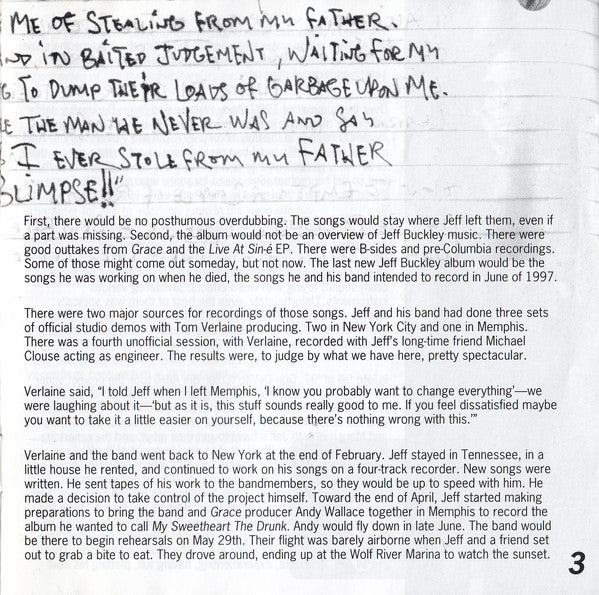 ME OF STEALING FROM MY FATHER.
ND IN BAITED JUDGEMENT, WAITING FOR MY
G TO DUMP THEIR LOADS OF GARBAGE UPON ME.
E THE MAN HE NEVER WAS AND SAY
I EVER STOLE FROM MY FATHER
GLIMPSE!!"
First, there would be no posthumous overdubbing. The songs would stay where Jeff left them, even if
a part was missing. Second, the album would not be an overview of Jeff Buckley music. There were
good outtakes from Grace and the Live At Sin-é EP. There were B-sides and pre-Columbia recordings.
Some of those might come out someday, but not now. The last new Jeff Buckley album would be the
songs he was working on when he died, the songs he and his band intended to record in June of 1997.
There were two major sources for recordings of those songs. Jeff and his band had done three sets
of official studio demos with Tom Verlaine producing. Two in New York City and one in Memphis.
There was a fourth unofficial session, with Verlaine, recorded with Jeff's long-time friend Michael
Clouse acting as engineer. The results were, to judge by what we have here, pretty spectacular.
Verlaine said, "I told Jeff when I left Memphis, 'I know you probably want to change everything'—we
were laughing about it—'but as it is, this stuff sounds really good to me. If you feel dissatisfied maybe
you want to take it a little easier on yourself, because there's nothing wrong with this.'"
Verlaine and the band went back to New York at the end of February. Jeff stayed in Tennessee, in a
little house he rented, and continued to work on his songs on a four-track recorder. New songs were
written. He sent tapes of his work to the bandmembers, so they would be up to speed with him. He
made a decision to take control of the project himself. Toward the end of April, Jeff started making
preparations to bring the band and Grace producer Andy Wallace together in Memphis to record the
album he wanted to call My Sweetheart The Drunk. Andy would fly down in late June. The band would
be there to begin rehearsals on May 29th. Their flight was barely airborne when Jeff and a friend set
out to grab a bite to eat. They drove around, ending up at the Wolf River Marina to watch the sunset.
3